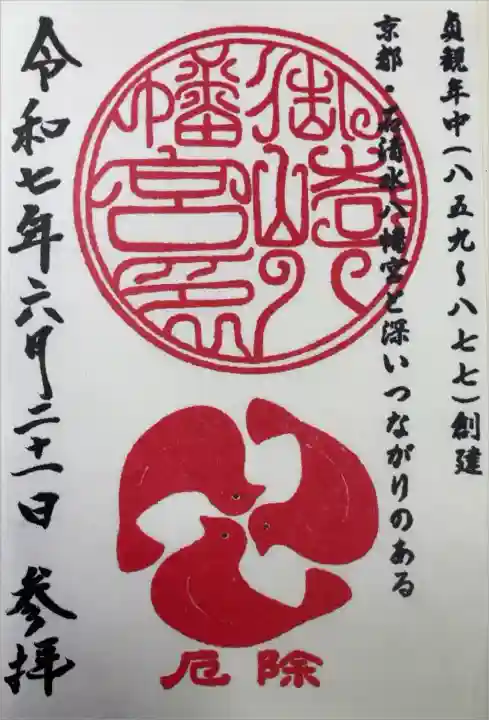 貞観年中(八五九~八七七)創建
京都・石清水八幡宮と深いつながりのある
御崎
八幡
宮印
厄除
令和七年六月二十一日 参拝